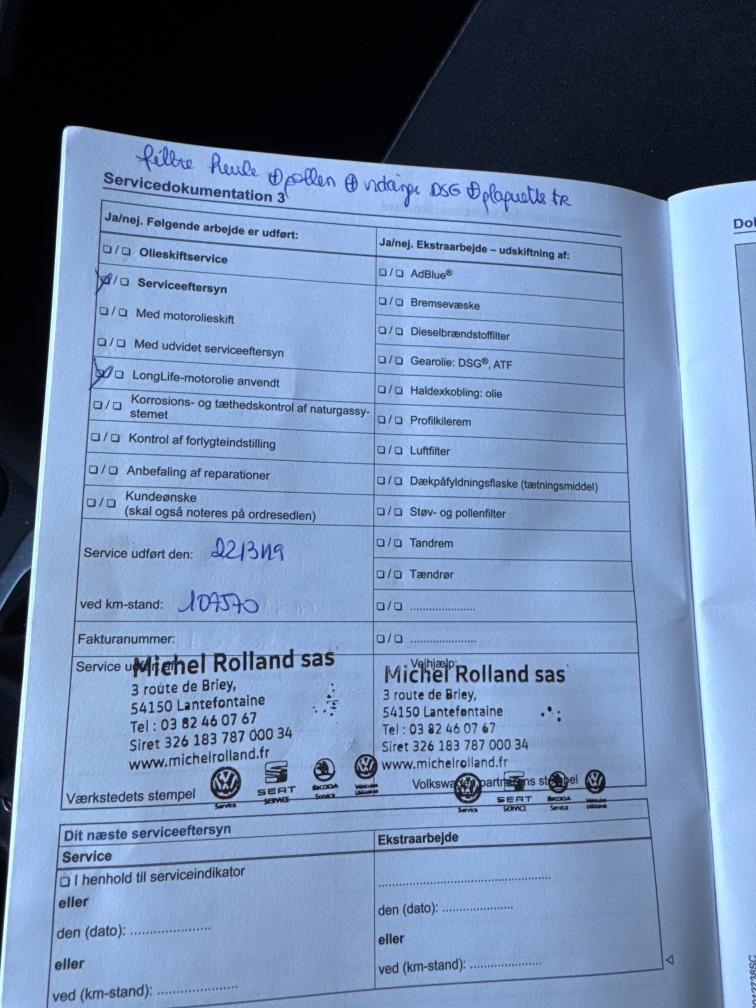 filtre huile ⊕ pollen ⊕ vidange DSG ⊕ plaquette tr
Servicedokumentation 3
Ja/nej. Følgende arbejde er udført:
☐/☐ Olieskiftservice
☐/☐ Serviceeftersyn
☐/☐ Med motorolieskift
☐/☐ Med udvidet serviceeftersyn
☐/☐ LongLife-motorolie anvendt
☐/☐ Korrosions- og tæthedskontrol af naturgassy-
stemet
☐/☐ Kontrol af forlygteindstilling
☐/☐ Anbefaling af reparationer
☐/☐ Kundeønske
(skal også noteres på ordresedlen)
Service udført den: 22/3/19
ved km-stand: 107570
Fakturanummer:
Ja/nej. Ekstraarbejde – udskiftning af:
☐/☐ AdBlue®
☐/☐ Bremsevæske
☐/☐ Dieselbrændstoffilter
☐/☐ Gearolie: DSG®, ATF
☐/☐ Haldexkobling: olie
☐/☐ Profilkilerem
☐/☐ Luftfilter
☐/☐ Dækpåfyldningsflaske (tætningsmiddel)
☐/☐ Støv- og pollenfilter
☐/☐ Tandrem
☐/☐ Tændrør
☐/☐ ......................
☐/☐ ......................
Service
Michel Rolland sas
3 route de Briey,
54150 Lantefontaine
Tel : 03 82 46 07 67
Siret 326 183 787 000 34
www.michelrolland.fr
SEAT
SERVICE
ŠKODA
Service
Service
Værkstedets stempel
Vejhjælp:
Michel Rolland sas
3 route de Briey,
54150 Lantefontaine
Tel : 03 82 46 07 67
Siret 326 183 787 000 34
www.michelrolland.fr
SEAT
SERVICE
ŠKODA
Service
Service
Volkswagen partnerens stempel
Dit næste serviceeftersyn
Service
☐ I henhold til serviceindikator
eller
den (dato): ......................
eller
ved (km-stand): ......................
Ekstraarbejde
......................
den (dato): ......................
eller
ved (km-stand): ......................
Do